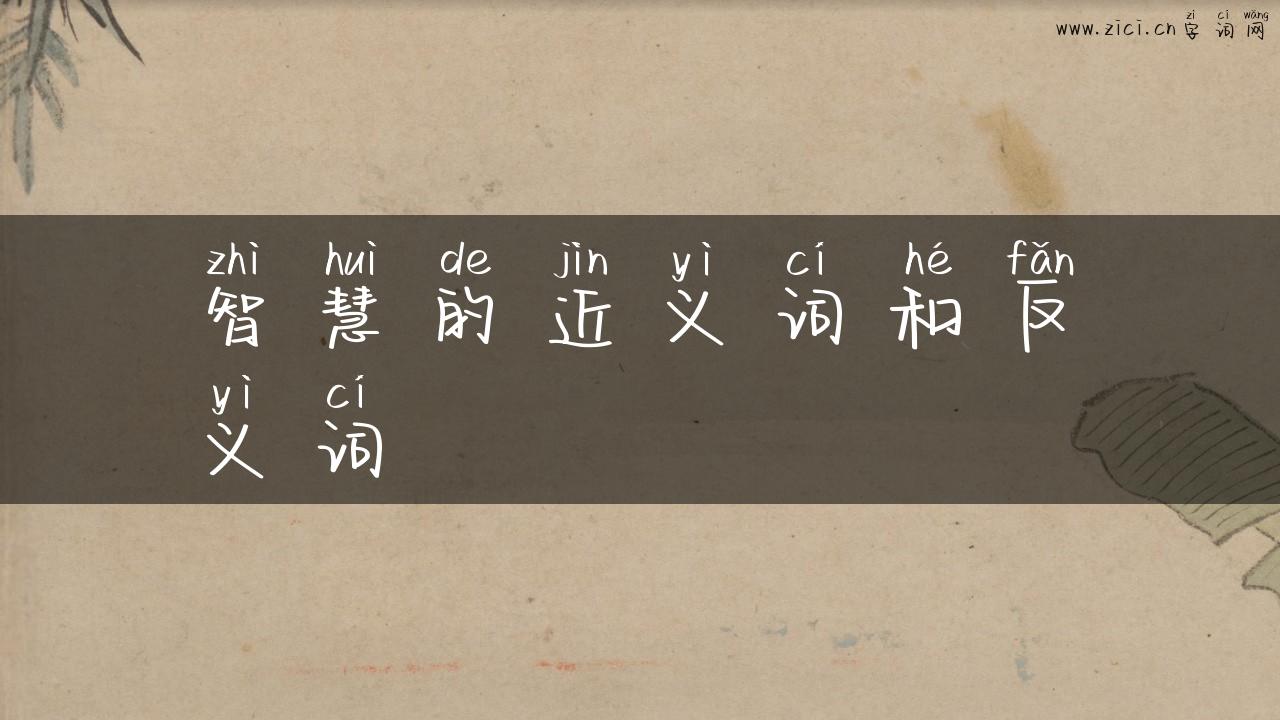 zì cí wǎng
www.zici.cn 字 词 网
zhì huì de jìn yì cí hé fǎn
智 慧 的 近 义 词 和 反
yì cí
义 词